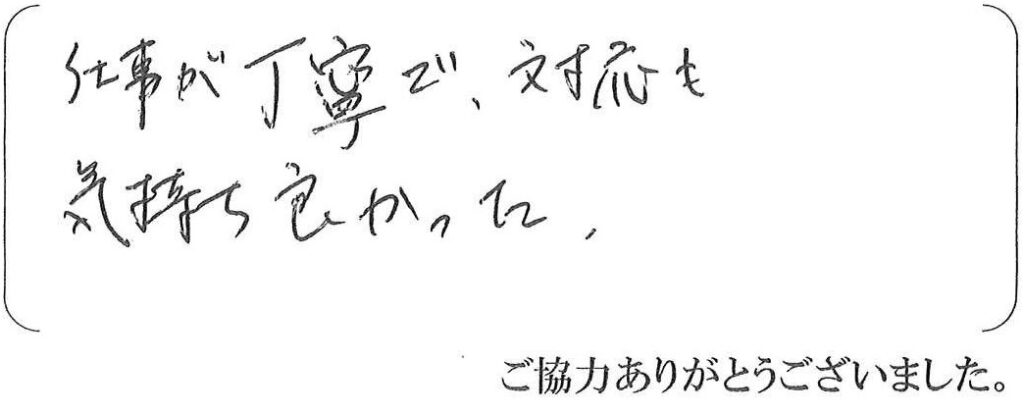 仕事が丁寧で、対応も
気持ち良かった、
ご協力ありがとうございました。